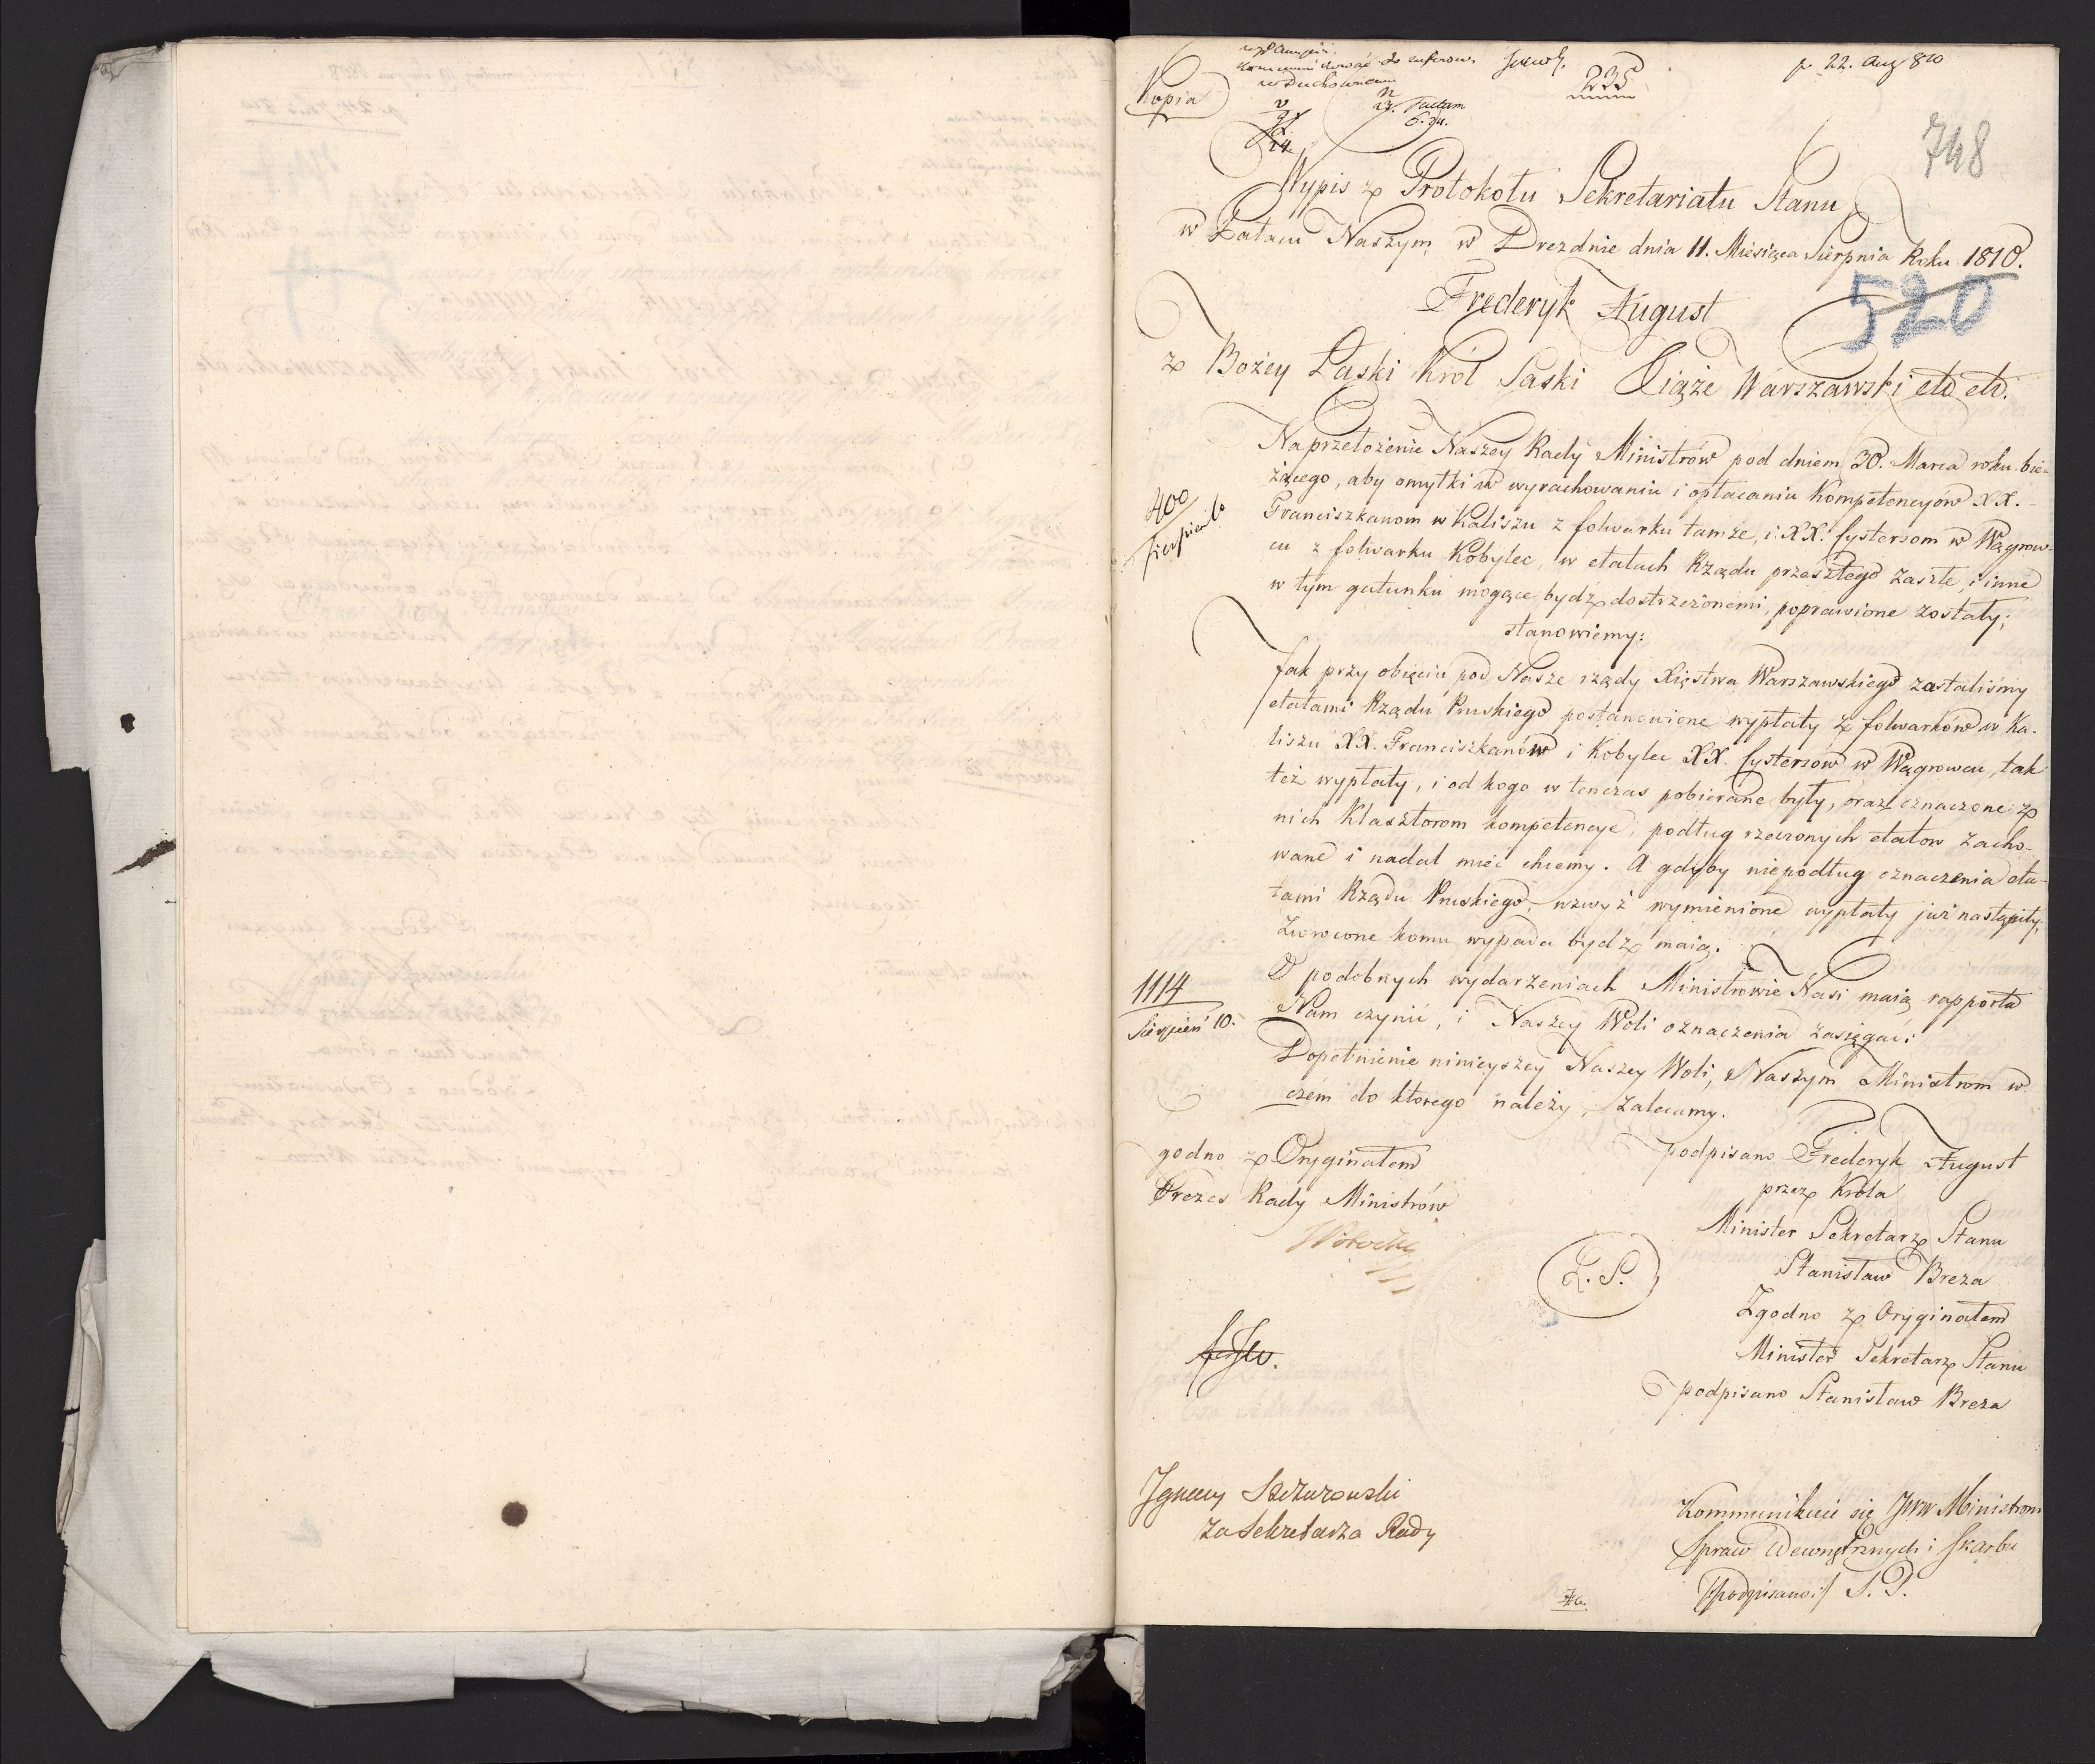 Kopia
235
p 22. Aug 810
748
Wypis z Protokołu Sekretariatu Stanu
w Pałacu Naszym w Dreznie dnia 11. Miesiąca Sierpnia Roku 1810.
520
Frederyk August
z Bożey Łaski Król Saski Xiąże Warszawski etc etc.
Na przełożenie Naszey Rady Ministrów pod dniem 30. Marca roku bie-
żącego, aby omyłki w wyrachowaniu i opłacaniu Kompetencyów XX.
400
Franciszkanom w Kaliszu z folwarku tamże, i XX. Cystersom w Wągrow-
cu z folwarku Kobylec, w etatach Rządu przeszłego zaszłe, i inne
w tym gatunku mogące bydź dostrzeżonemi, poprawione zostały;
stanowiemy:
Jak przy obięciu pod Nasze rządy Xięstwa Warszawskiego zastaliśmy
etatami Rządu Pruskiego postanowione wypłaty z folwarków w Ka-
liszu XX. Franciszkanów i Kobylec XX. Cystersów w Wągrowcu, tak
też wypłaty, i od kogo w tenczas pobierane były, oraz oznaczone z
nich Klasztorom kompetencye, podług rzeczonych etatow zacho-
wane i nadal mieć chcemy. A gdyby niepodług oznaczenia eta-
tami Rządu Pruskiego, wzwyż wymienione wypłaty już nastąpiły,
zwrocone komu wypada bydź maią.
1114
Sierpień 10.
O podobnych wydarzeniach Ministrowie Nasi maią rapporta
Nam czynić, i Naszey Woli oznaczenia zasięgać.
Dopełnienie ninieyszey Naszey Woli, Naszym Ministrom w
czém do ktorego należy, zalecamy.
Zgodno z Oryginałem
Prezes Rady Ministrów
podpisano Frederyk August
przez Króla
Minister Sekretarz Stanu
Stanisław Breza
L. S.
Zgodno z Oryginałem
Minister Sekretarz Stanu
podpisano Stanisław Breza
Ignacy
za Sekretarza Rady
Kommunikuie się JWW Ministrom
Spraw Wewnętrznych i Skarbu
/:podpisano:/ S. P.